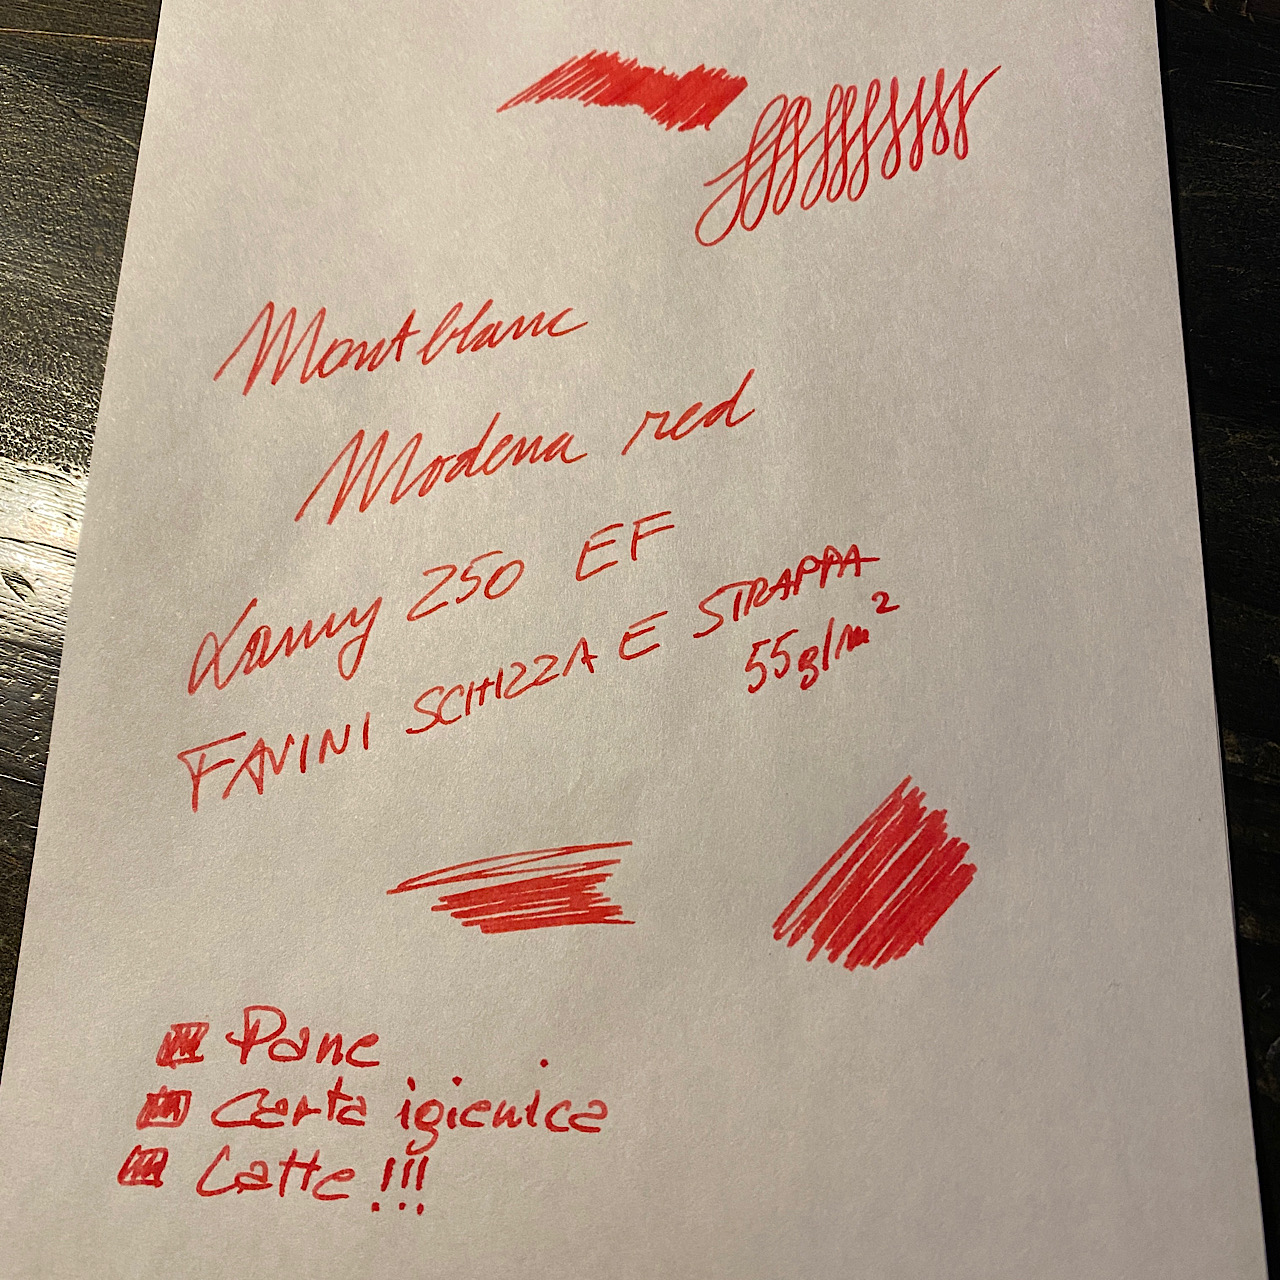 Montblanc
Modena red
Lamy 250 EF
FAVINI SCHIZZA E STRAPPA
55g/m²
Pane
Carta igienica
Latte!!!